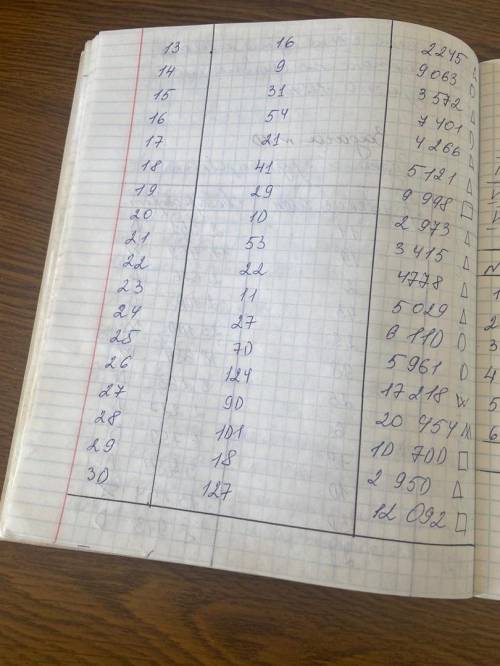 13 16 2245 Δ
14 9 9063 O
15 31 3572 Δ
16 54 7401 O
17 21 4266 Δ
18 41 5121 Δ
19 29 9 998 □
20 10 2 973 Δ
21 53 3 415 Δ
22 22 4778 Δ
23 11 5029 Δ
24 27 6 110 O
25 70 5 961 O
26 124 17 218 W
27 90 20 454 M
28 101 10 700 □
29 18 2 950 Δ
30 127 12 092 □
N
1
2
3
4
5
6